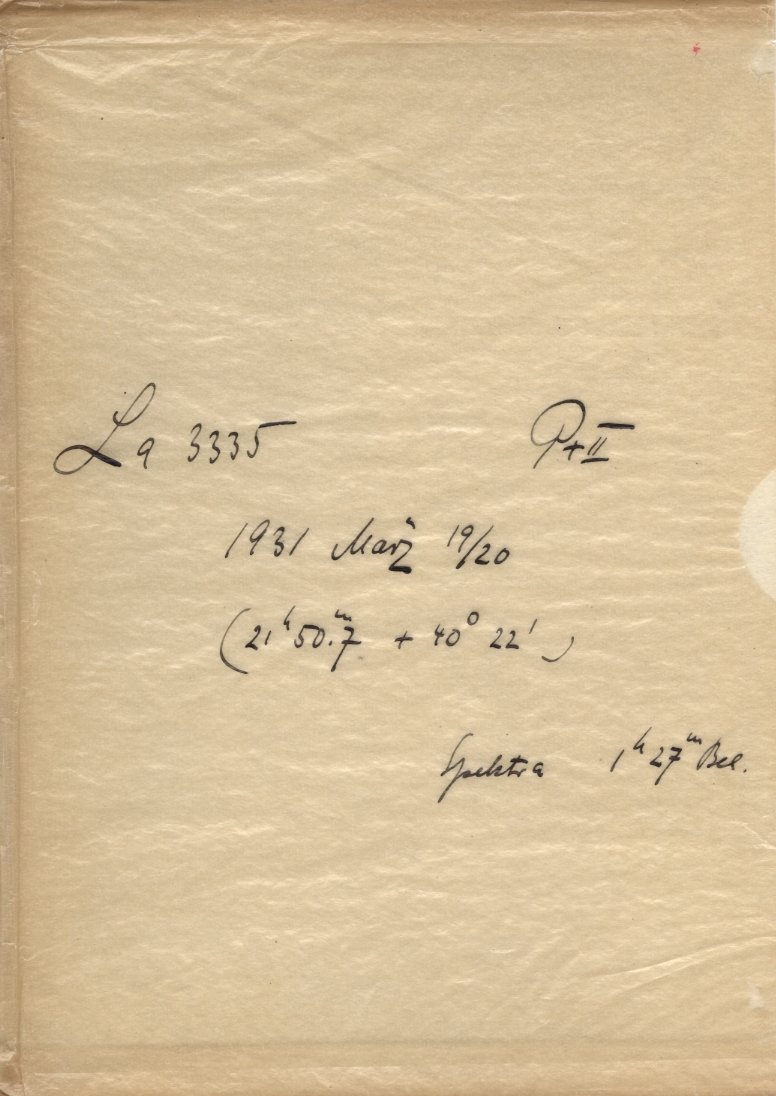 La 3335 P+II
1931 März 19/20
(21ʰ 50.ᵐ7 + 40° 22')
Spektra 1ʰ 27ᵐ Bel.